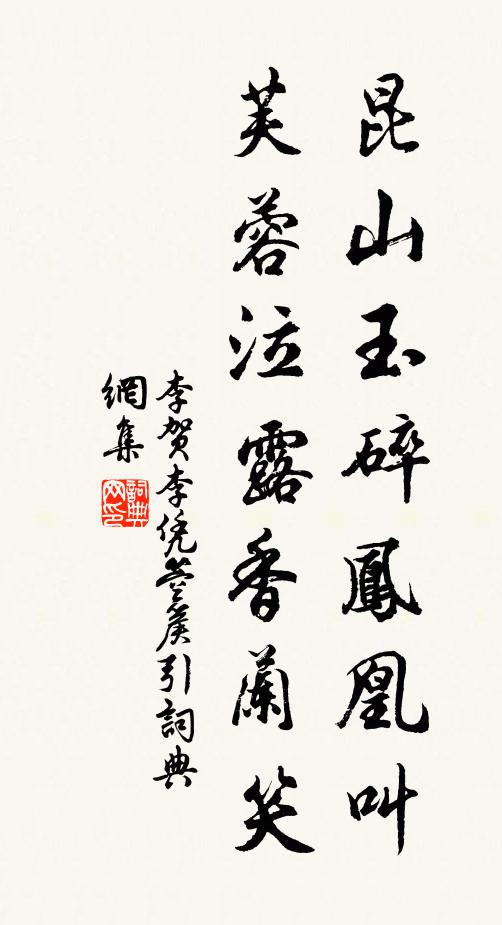 昆山玉碎鳳凰叫
芙蓉泣露香蘭笑
李賀李凭箜篌引詞典
網集
詞典
网印